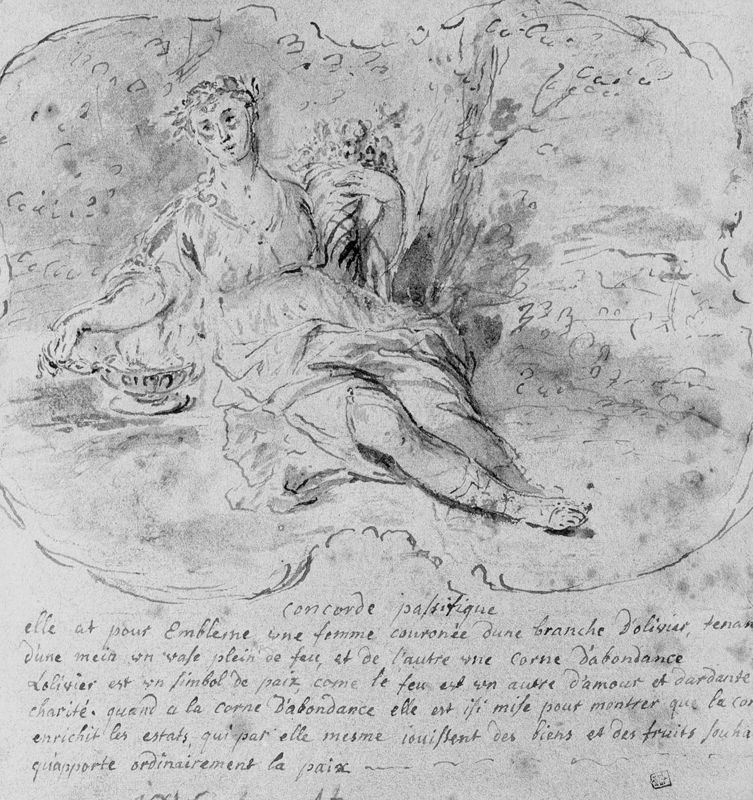 concorde passifique
elle at pour Embleme une femme couronée dune branche D'olivier, tenan
d'une mein un vase plein de feu, et de l'autre une Corne D'abondance
Lolivier est un simbol de paix, come le feu est un autre d'amour et dardante
charité. quand a la corne D'abondance elle est isi mise pour montrer que la con
enrichit les estats, qui par elle mesme iouissent des biens et des fruits souha
qu'apporte ordinairement la paix